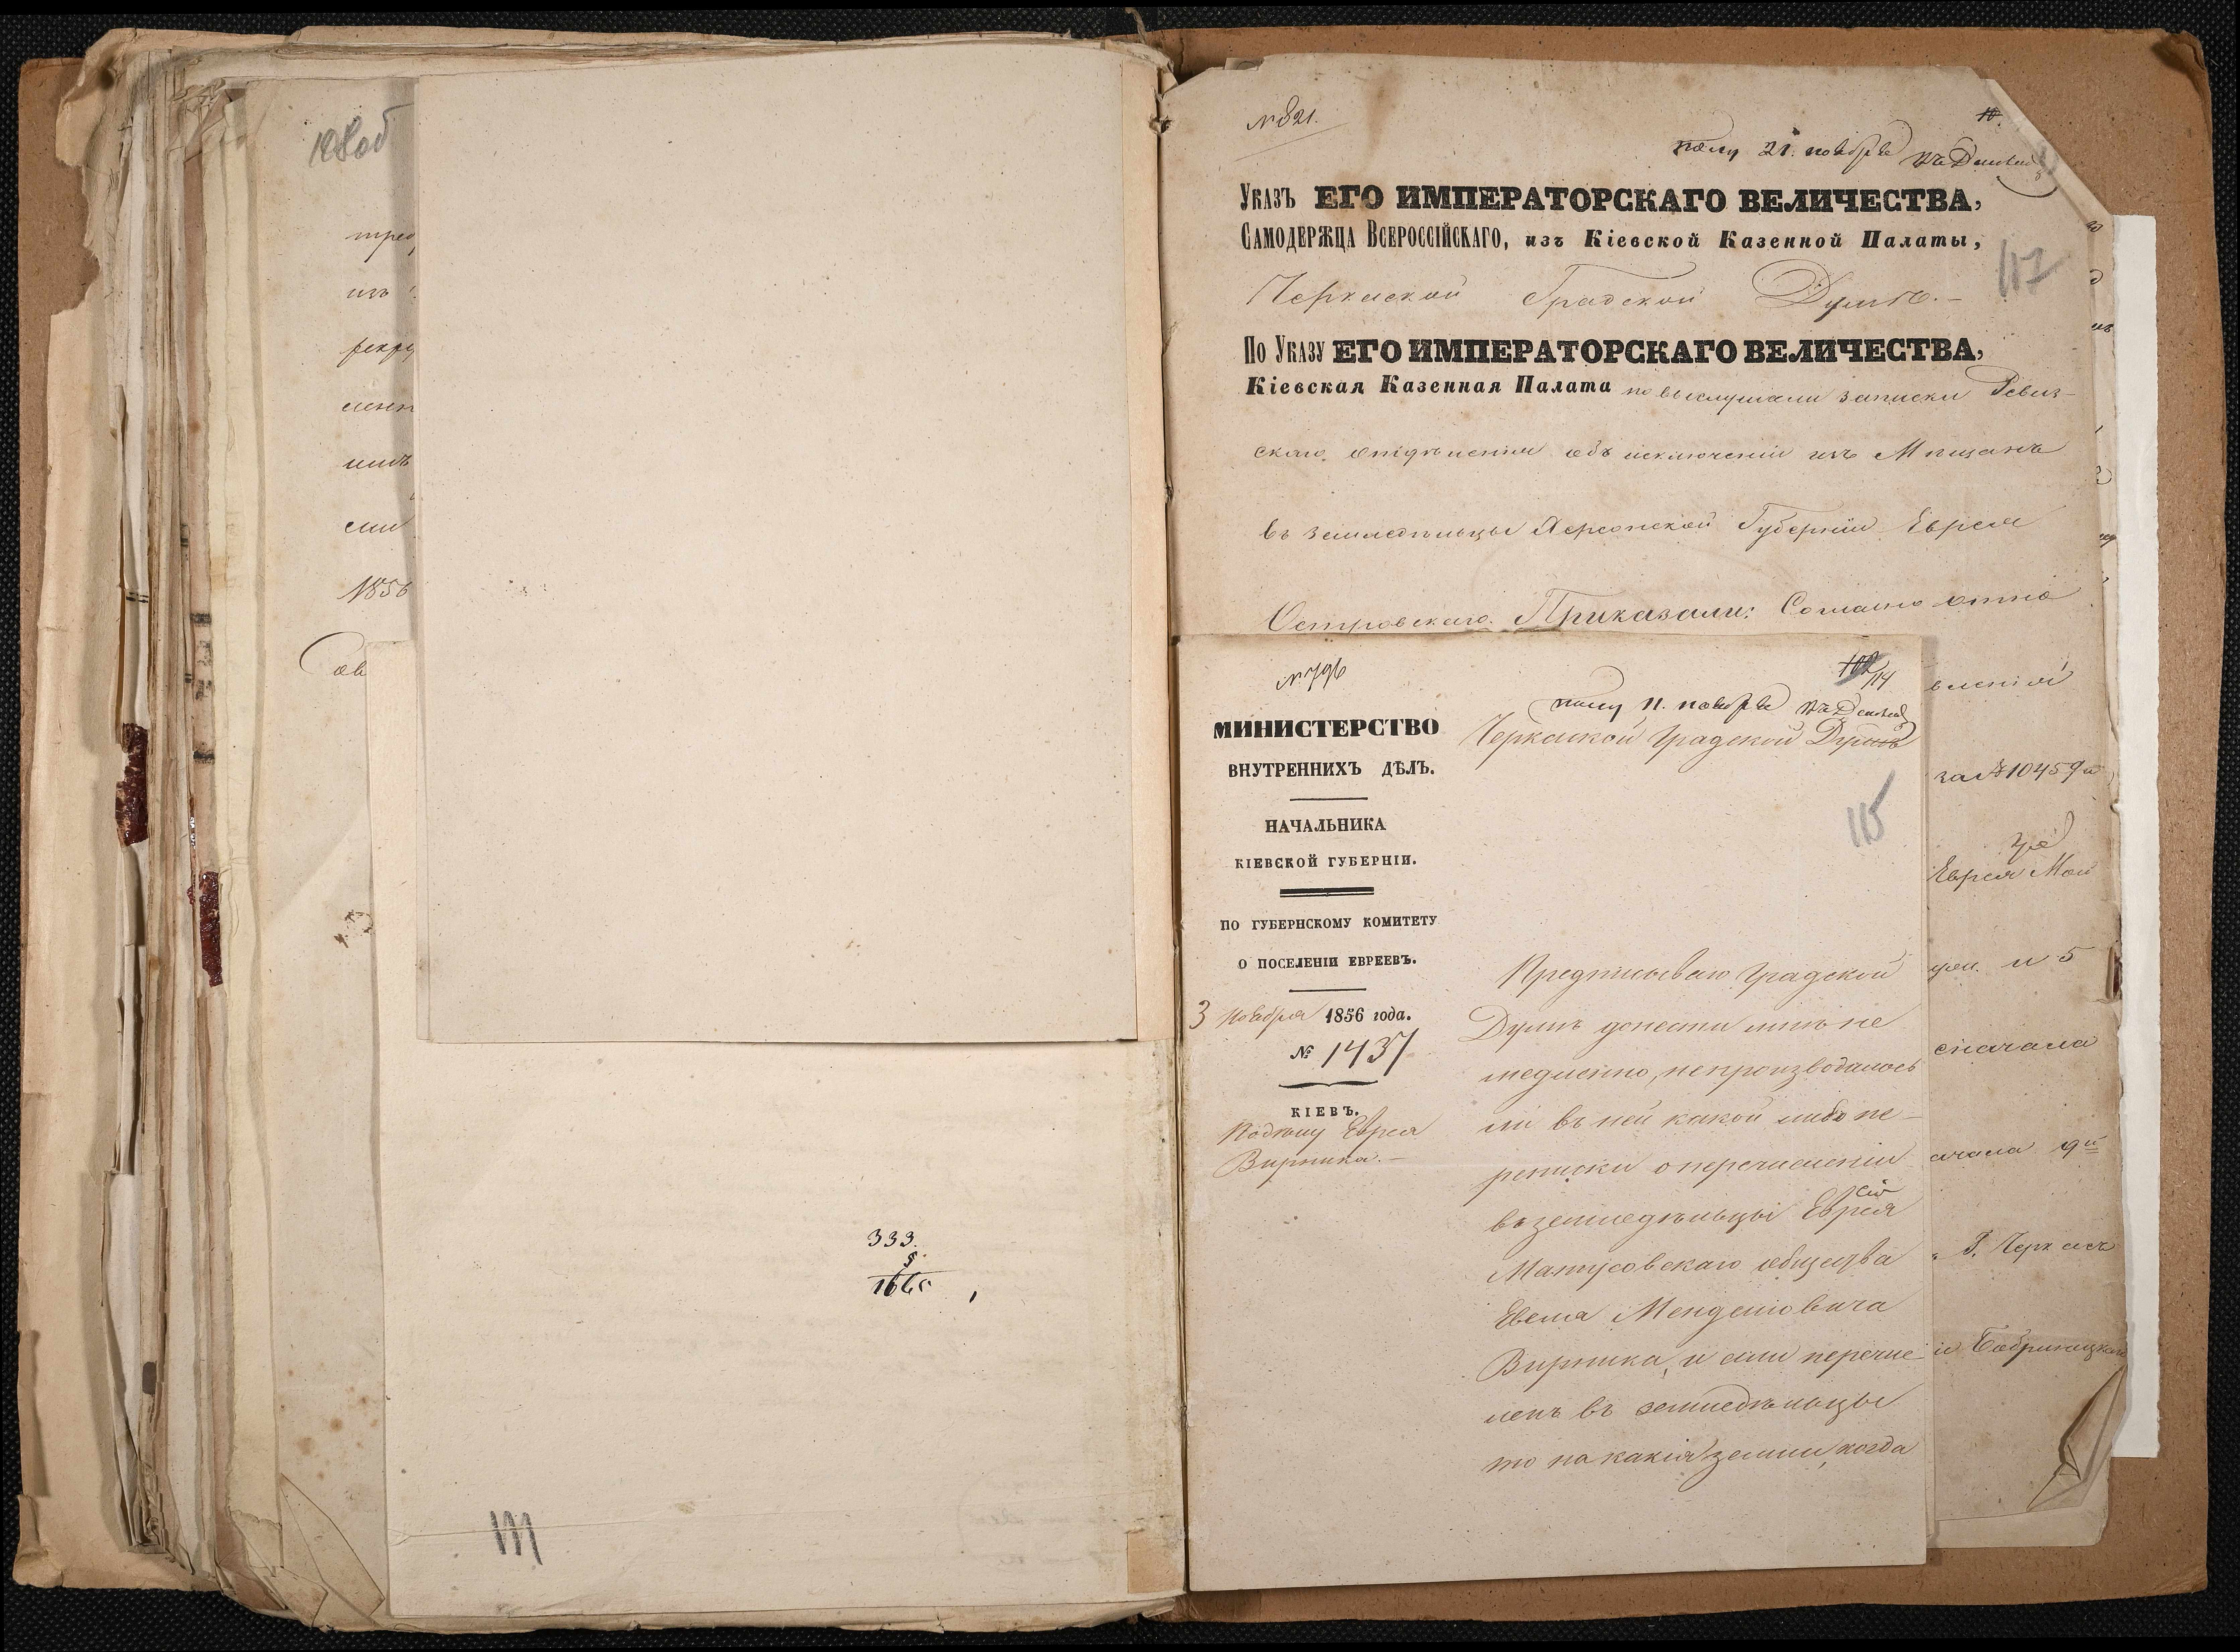 108 об
трео
изъ
рекру
ленн
шть
сли
1856
ов
333.
5
1665
№ 821.
10.
полу 21. ноября
Указъ ЕГО ИМПЕРАТОРСКАГО ВЕЛИЧЕСТВА,
Самодержца Всероссійскаго, изъ Кіевской Казенной Палаты,
117
Черкаской Градской Думѣ.-
По Указу ЕГО ИМПЕРАТОРСКАГО ВЕЛИЧЕСТВА,
Кіевская Казенная Палата по выслушали записки Ревиз-
скаго отдѣленія объ исключеніи изъ Мѣщанъ
въ земледѣльцы Херсонской Губерніи Еврея
Островскаго. Приказали: Согласно отно
вленій
за № 10459 и
Еврея Мой
и 5
сначала
ачала 9й
Г. Черкасъ
Бобринецкаго
№ 796
102
114
полу 11. ноября
МИНИСТЕРСТВО
ВНУТРЕННИХЪ ДѢЛЪ.
НАЧАЛЬНИКА
КІЕВСКОЙ ГУБЕРНІИ.
ПО ГУБЕРНСКОМУ КОМИТЕТУ
О ПОСЕЛЕНІИ ЕВРЕЕВЪ.
3 Ноября 1856 года.
№ 1437
КІЕВЪ.
По дѣлу Еврея
Вирника.-
Черкаской Градской Думѣ
115
Предписываю Градской
Думѣ донести мнѣ не
медленно, непроизводилось
ли въ ней какой либо пе-
реписки о перечисленіи
въ земледѣльцы Еврея
Матусовскаго общества
Евеля Менделіовича
Вирника, и если перечис
ленъ въ земледѣльцы
то на какія земли, когда